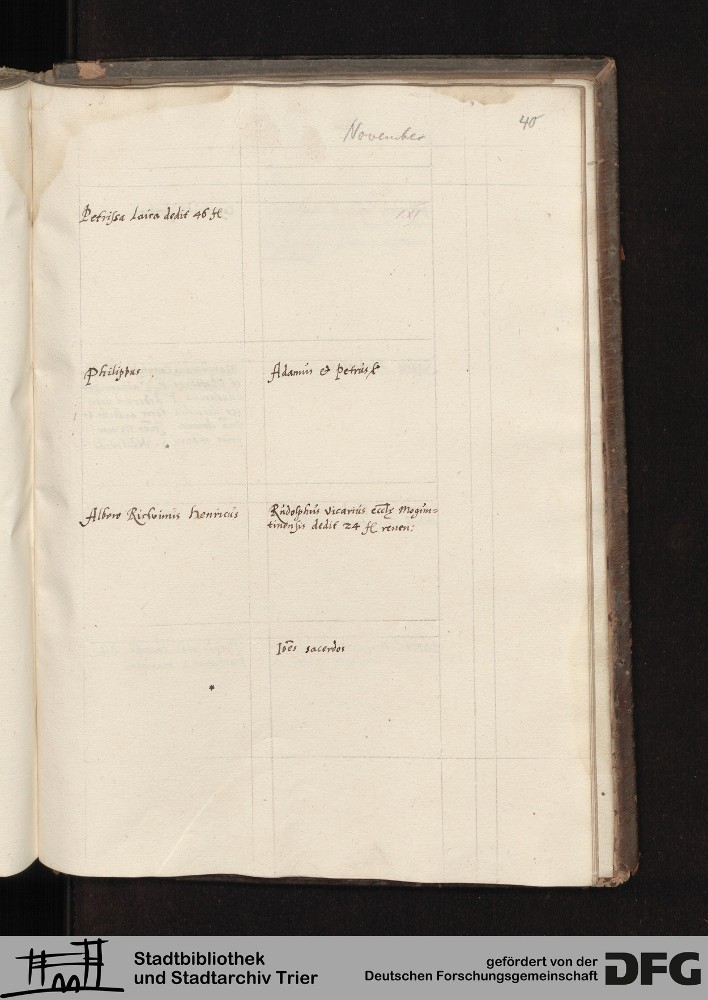 November
40
Petrissa laica dedit 46 fl
Philippus
Adamus & Petrus
Albero Richvinis Henricus
Rudolphus vicarius eccle Mogun=
tinensis dedit 24 fl renen:
Joes sacerdos
Stadtbibliothek
und Stadtarchiv Trier
gefördert von der
Deutschen Forschungsgemeinschaft
DFG